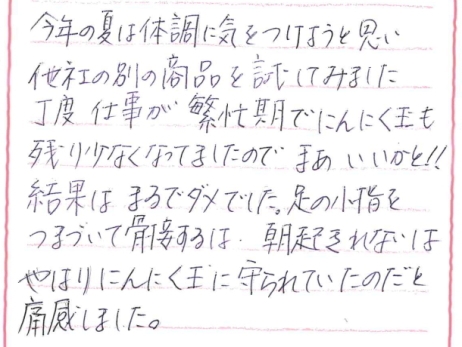 今年の夏は体調に気をつけようと思い
他社の別の商品を試してみました
丁度 仕事が 繁忙期でにんにく玉も
残り少なくなってましたので まあ いいかと!!
結果は まるでダメでした。足の小指を
つまづいて骨接するは、朝起きれないは
やはりにんにく玉に守られていたのだと
痛感しました。